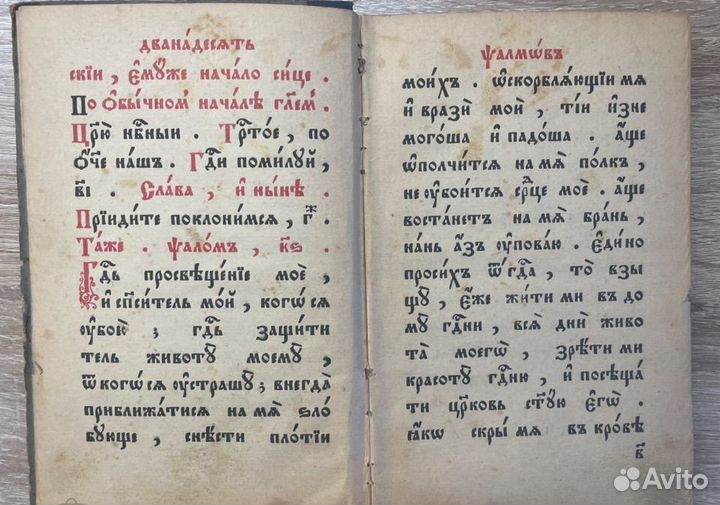 двана́десѧть
скїи , є҆мꙋ́же нача́ло си́це .
По ѻ҆бы́чном нача́лѣ гл҃ем .
Цр҃ю̀ нб҇ныи . Трт҃о́е , по
ѻ҆́ч҃е на́шъ . Гд҇и поми́лꙋй ,
в҃і . Сла́ва , и҆ ны́нѣ .
Прїиди́те поклони́мсѧ , г҃ж .
Та́же . ѱало́мъ , к҃ѕ .
Гд҇ь просвѣще́нїе моѐ ,
и҆ сп҇си́тель мо́й , когѡ́сѧ
ᲂу҆бою̀ ; гд҇ь защи́ти
тель животꙋ̀ моемꙋ̀ ,
ѿ когѡ́сѧ ᲂу҆страшꙋ̀ ; внегда̀
приближа́тисѧ на мѧ̀ ѕло́
бꙋюще , снѣ́сти пло́тїи
ѱалмѡ́въ
мои́хъ . ѡ҆скорблѧ́ющїи мѧ
и҆ вразѝ мои̑ , ті́и и҆зне
мого́ша и҆ падо́ша . а҆́ще
ѡ҆полчи́тсѧ на мѧ̀ по́лкъ ,
не ᲂу҆бои́тсѧ ср҇це моѐ . а҆́ще
воста́нетъ на мѧ̀ бра́нь ,
на́нь а҆́зъ ᲂу҆пова́ю . Є҆ди́но
проси́хъ ѿ гд҇а , то̀ взы
щꙋ̀ , є҆́же жи́ти ми въ до
мꙋ̀ гд҇ни , всѧ̀ дни̑ живо
та̀ моегѡ̀ , зрѣ́ти ми
красотꙋ̀ гд҇ню , и҆ посѣща́
ти цр҃ковь ст҃ꙋ́ю є҆гѡ̀ .
ꙗ҆́кѡ скры́ мѧ въ кро́вѣ
в҃
Avito